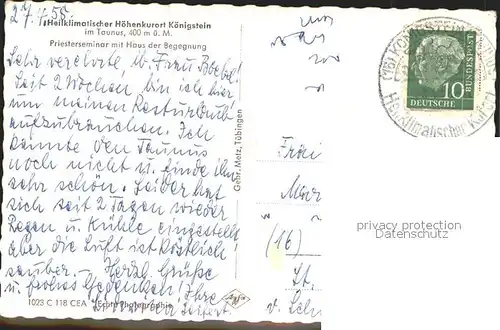 27.7.55.
Heilklimatischer Höhenkurort Königstein
im Taunus, 400 m ü. M.
Priesterseminar mit Haus der Begegnung
Sehr verehrte, lb. Frau
Seit 2 Wochen bin ich hier
um meinen Resturlaub
aufzubrauchen. Ich
kannte den Taunus
noch nicht u. finde ihn
sehr schön. Leider hat
sich seit 2 Tagen wieder
Regen u. Kühle eingestellt
aber die Luft ist köstlich
sauber. — Herzl. Grüße
und frohes Gedenken! Ihre
Seifert.
1023 C 118 CEA
Echte Photographie
Agfa
Gebr. Metz, Tübingen
(16) KÖNIGSTEIN
Heilklimatischer Kurort
10
DEUTSCHE
BUNDESPOST
(16)
privacy protection
(Datenschutz)